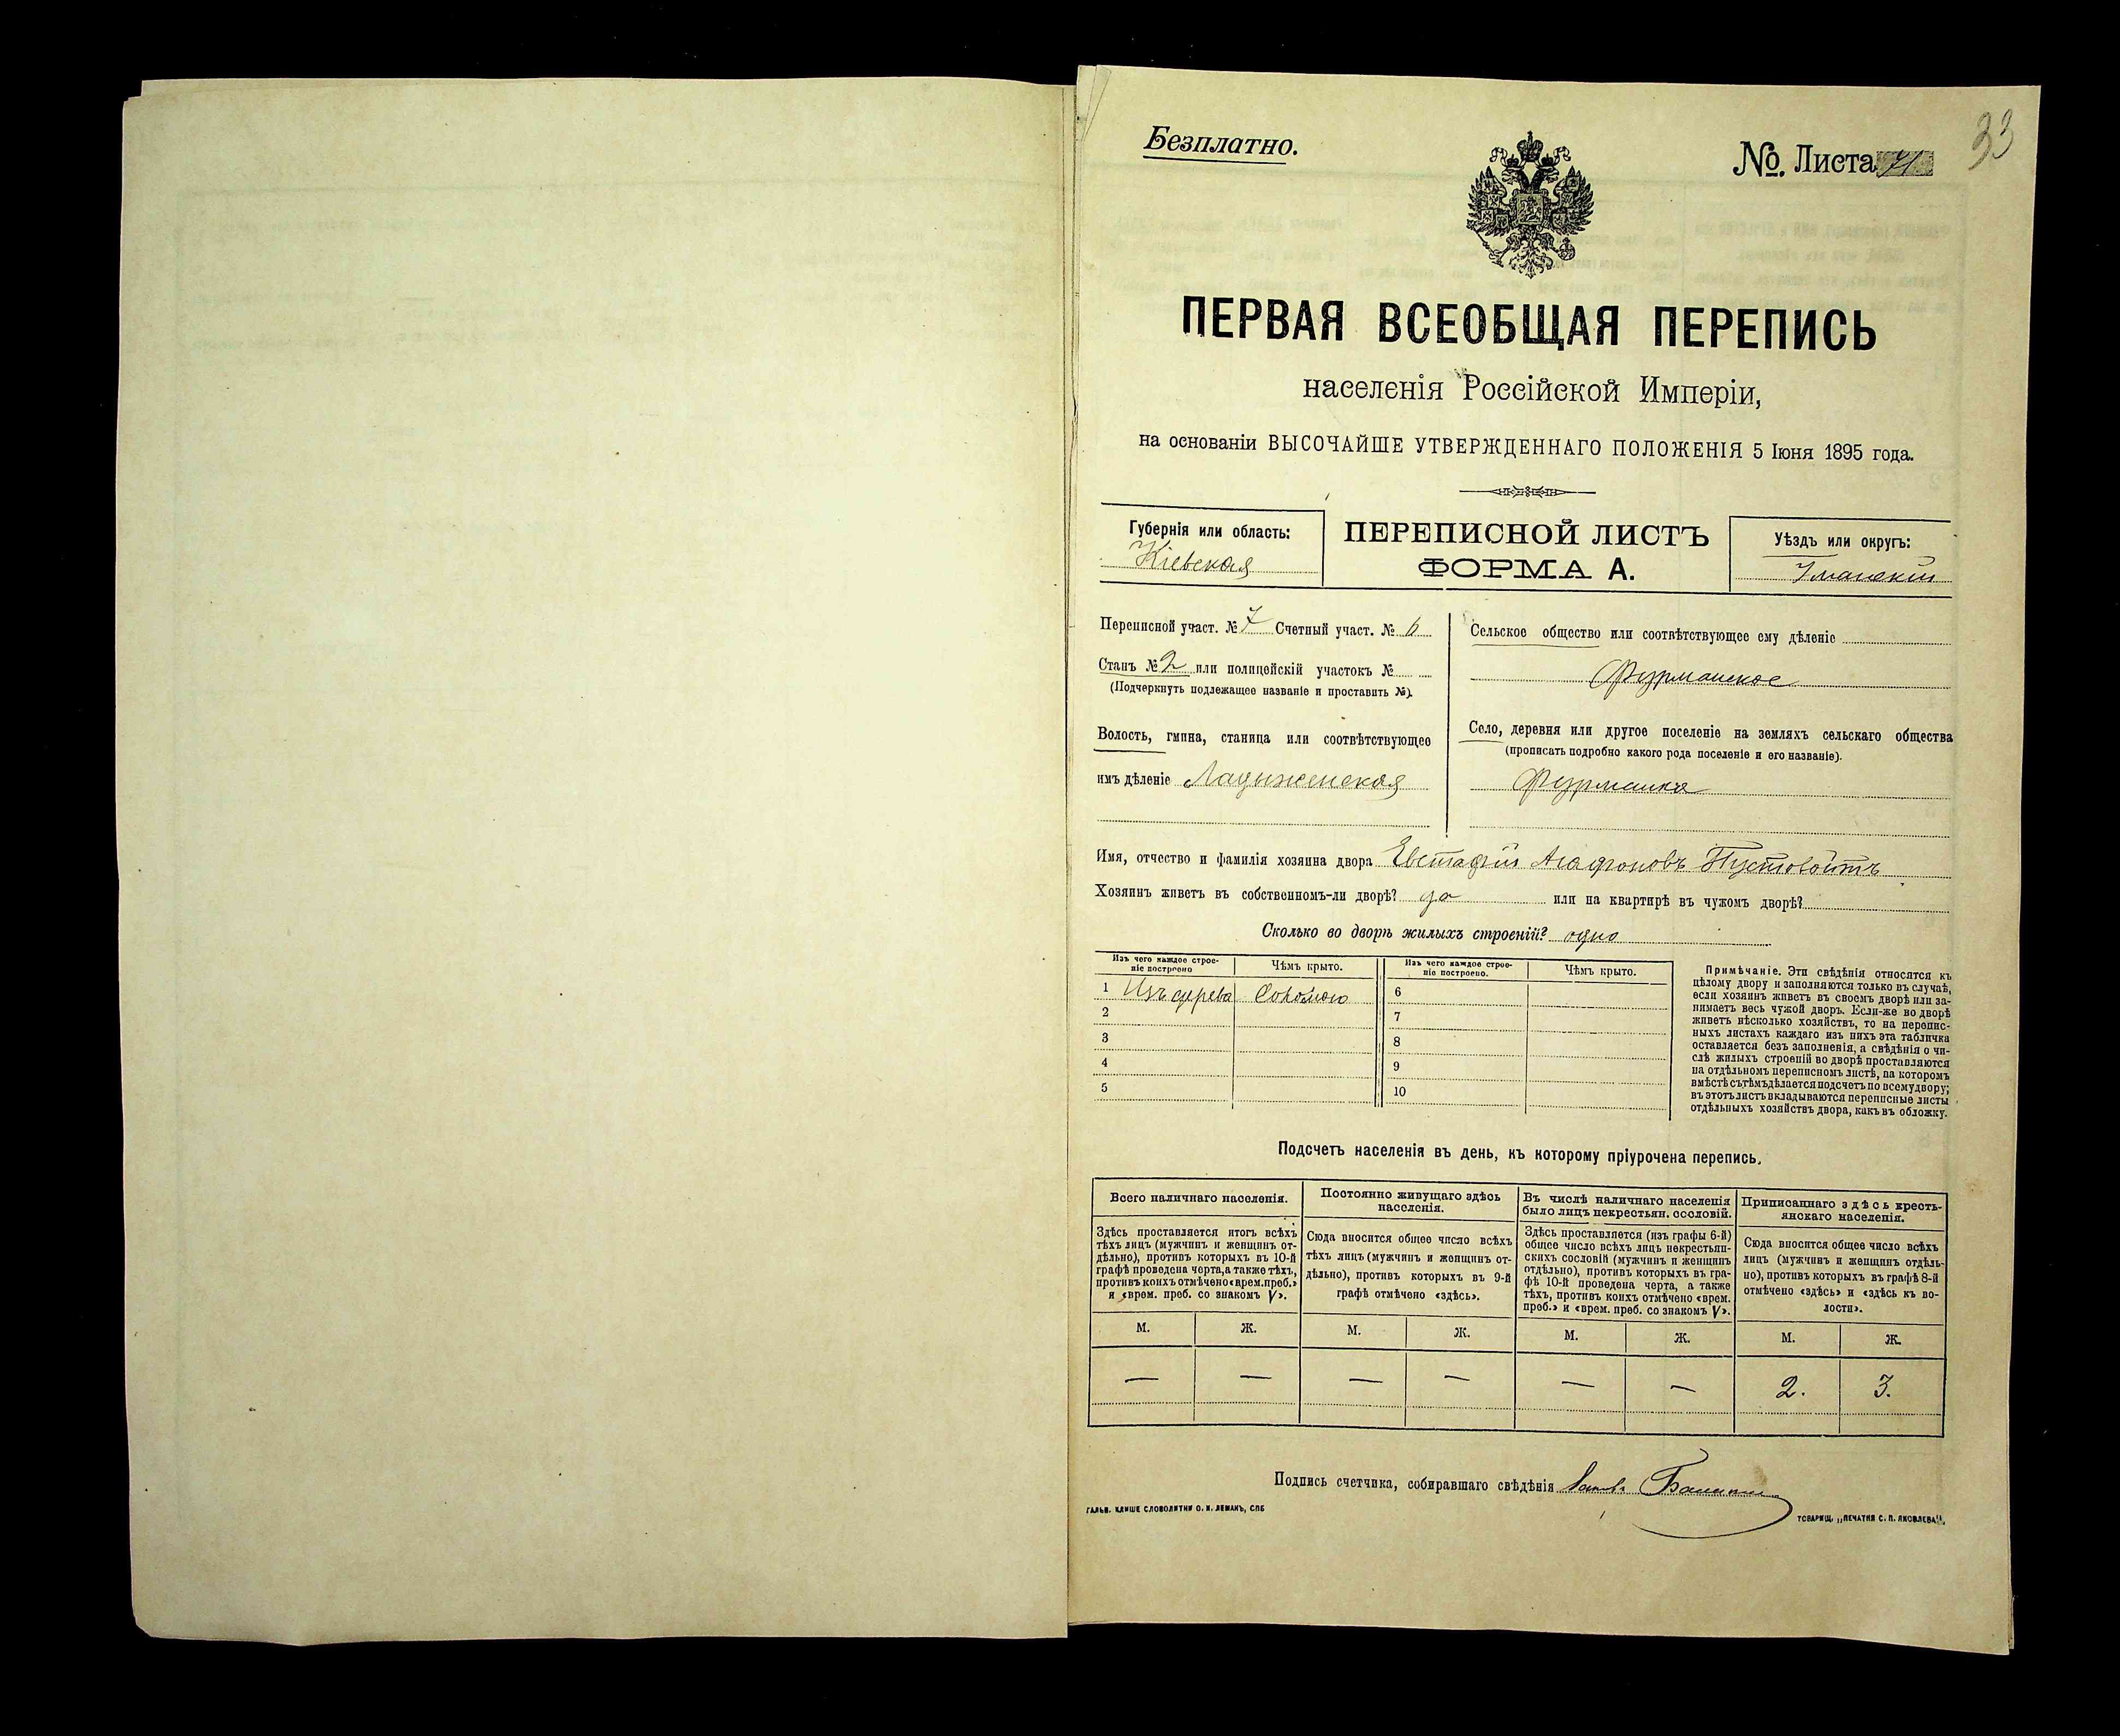 33
Безплатно.
№ Листа 71
ПЕРВАЯ ВСЕОБЩАЯ ПЕРЕПИСЬ
населенія Россійской Имперіи,
на основаніи ВЫСОЧАЙШЕ УТВЕРЖДЕННАГО ПОЛОЖЕНІЯ 5 Іюня 1895 года.
Губернія или область:
Кіевская
ПЕРЕПИСНОЙ ЛИСТЪ
ФОРМА А.
Уѣздъ или округъ:
Уманскій
Переписной участ. № 7 Счетный участ. № 6
Станъ № 2 или полицейскій участокъ №
(Подчеркнуть подлежащее названіе и проставить №).
Волость, гмина, станица или соотвѣтствующее
имъ дѣленіе Ладыженская
Сельское общество или соотвѣтствующее ему дѣленіе
Фурманское
Село, деревня или другое поселеніе на земляхъ сельскаго общества
(прописать подробно какого рода поселеніе и его названіе).
Фурманка
Имя, отчество и фамилія хозяина двора Евстафій Агафоновъ Пустовойтъ
Хозяинъ живетъ въ собственномъ-ли дворѣ? да или на квартирѣ въ чужомъ дворѣ?
Сколько во дворѣ жилыхъ строеній? одно
Изъ чего каждое строе-
ніе построено
Чѣмъ крыто.
Изъ чего каждое строе-
ніе построено.
Чѣмъ крыто.
1 Изъ дерева Соломою 6
2 7
3 8
4 9
5 10
Примѣчаніе. Эти свѣдѣнія относятся къ
цѣлому двору и заполняются только въ случаѣ,
если хозяинъ живетъ въ своемъ дворѣ или за-
нимаетъ весь чужой дворъ. Если-же во дворѣ
живетъ нѣсколько хозяйствъ, то на перепис-
ныхъ листахъ каждаго изъ нихъ эта табличка
оставляется безъ заполненія, а свѣдѣнія о чи-
слѣ жилыхъ строеній во дворѣ проставляются
на отдѣльномъ переписномъ листѣ, на которомъ
вмѣстѣ съ тѣмъ дѣлается подсчетъ по всему двору;
въ этотъ листъ вкладываются переписные листы
отдѣльныхъ хозяйствъ двора, какъ въ обложку.
Подсчетъ населенія въ день, къ которому пріурочена перепись.
Всего наличнаго населенія.
Здѣсь проставляется итогъ всѣхъ
тѣхъ лицъ (мужчинъ и женщинъ от-
дѣльно), противъ которыхъ въ 10-й
графѣ проведена черта, а также тѣхъ,
противъ коихъ отмѣчено «врем. преб.»
и «врем. преб. со знакомъ V».
Постоянно живущаго здѣсь
населенія.
Сюда вносится общее число всѣхъ
тѣхъ лицъ (мужчинъ и женщинъ от-
дѣльно), противъ которыхъ въ 9-й
графѣ отмѣчено «здѣсь».
Въ числѣ наличнаго населенія
было лицъ некрестьян. сословій.
Здѣсь проставляется (изъ графы 6-й)
общее число всѣхъ лицъ некрестьян-
скихъ сословій (мужчинъ и женщинъ
отдѣльно), противъ которыхъ въ гра-
фѣ 10-й проведена черта, а также
тѣхъ, противъ коихъ отмѣчено «врем.
преб.» и «врем. преб. со знакомъ V».
Приписаннаго здѣсь кресть-
янскаго населенія.
Сюда вносится общее число всѣхъ
лицъ (мужчинъ и женщинъ отдѣль-
но), противъ которыхъ въ графѣ 8-й
отмѣчено «здѣсь» и «здѣсь къ во-
лости».
М. Ж. М. Ж. М. Ж. М. Ж.
— — — — — — 2. 3.
Подпись счетчика, собиравшаго свѣдѣнія
ГАЛЬВ. КЛИШЕ СЛОВОЛИТНИ О. И. ЛЕМАНЪ, СПБ
ТОВАРИЩ. „ПЕЧАТНЯ С. П. ЯКОВЛЕВА".